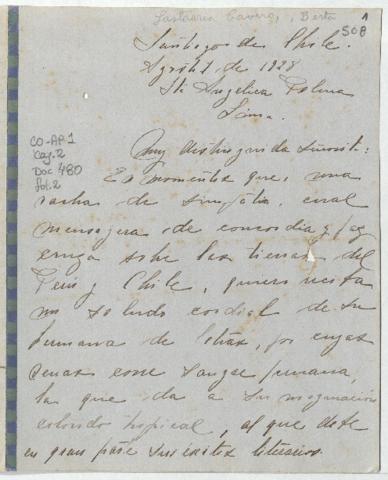 Lastarria Cavero, Berta
1
508
Santiago de Chile.
Agosto 1 de 1928
Sta Angélica Palma
Lima.
CO-AP1
Caj. 2
Doc 480
fol. 2
Muy distinguida señorita:
En momentos que, una
racha de simpatía, cual
mensajera de concordia y paz
cruza sobre las tierras del
Perú y Chile, quiero reciba
un saludo cordial de su
hermana de letras, por cuyas
venas corre sangre peruana,
la que da a su imaginación
colorido tropical, al que debe
en gran parte sus éxitos literarios.